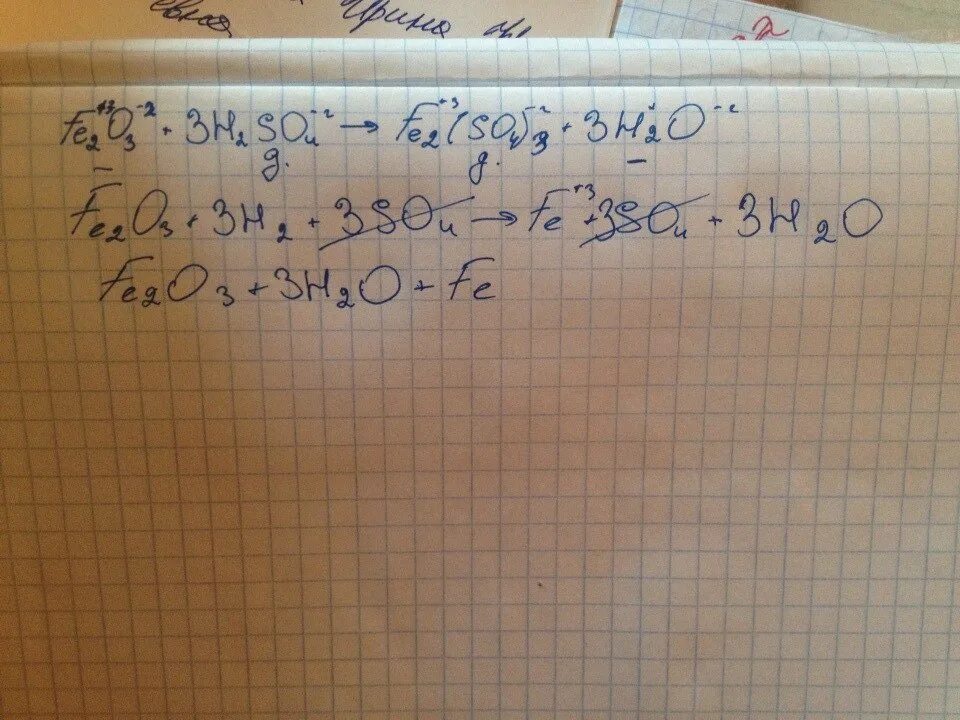 Ирина
Fe₂⁺³O₃⁻² + 3H₂SO₄⁻² → Fe₂⁺³(SO₄)₃⁻² + 3H₂O⁻²
– д. д. –
Fe₂O₃ + 3H₂ + 3SO₄ → Fe⁺³ + 3SO₄ + 3H₂O
Fe₂O₃ + 3H₂O + Fe